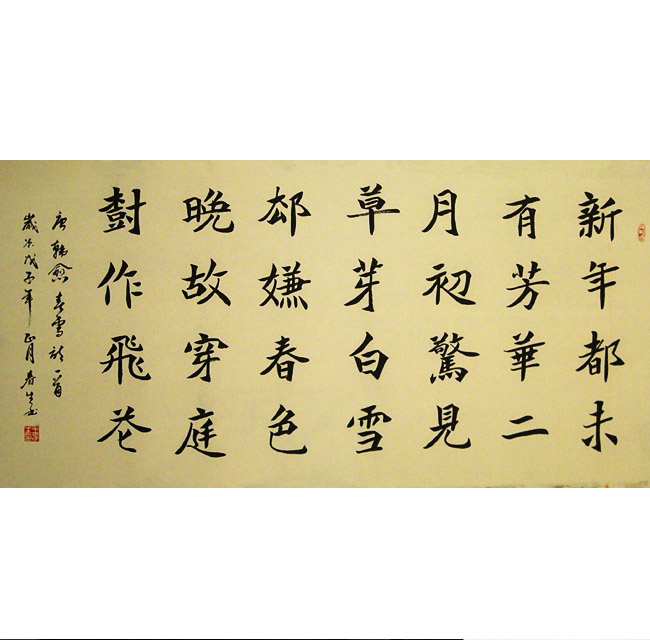 新年都未
有芳華二
月初驚見
草芽白雪
却嫌春色
晚故穿庭
樹作飛花
唐韓愈春雪詩一首
歲次戊子年正月春生書